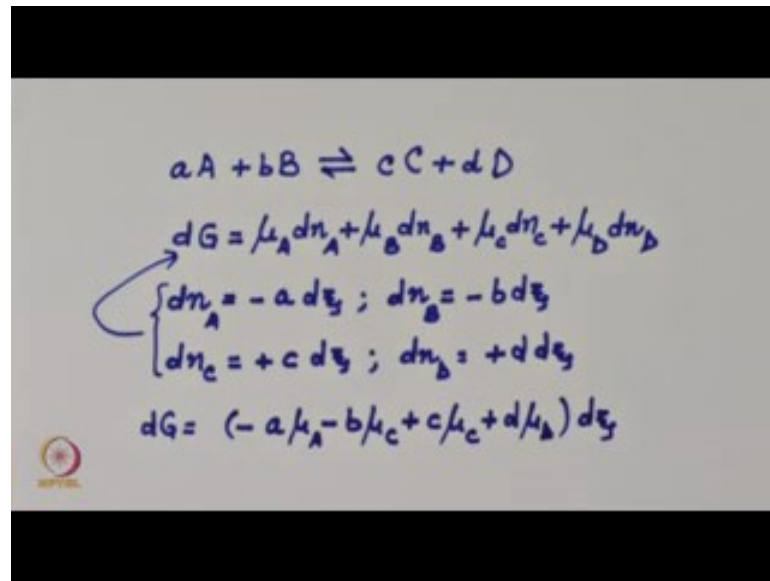 aA + bB ⇌ cC + dD
dG = μ_A dn_A + μ_B dn_B + μ_C dn_C + μ_D dn_D
dn_A = - a dξ ; dn_B = - b dξ
dn_C = + c dξ ; dn_D = + d dξ
dG = (- aμ_A - bμ_C + cμ_C + dμ_D) dξ
NPTEL